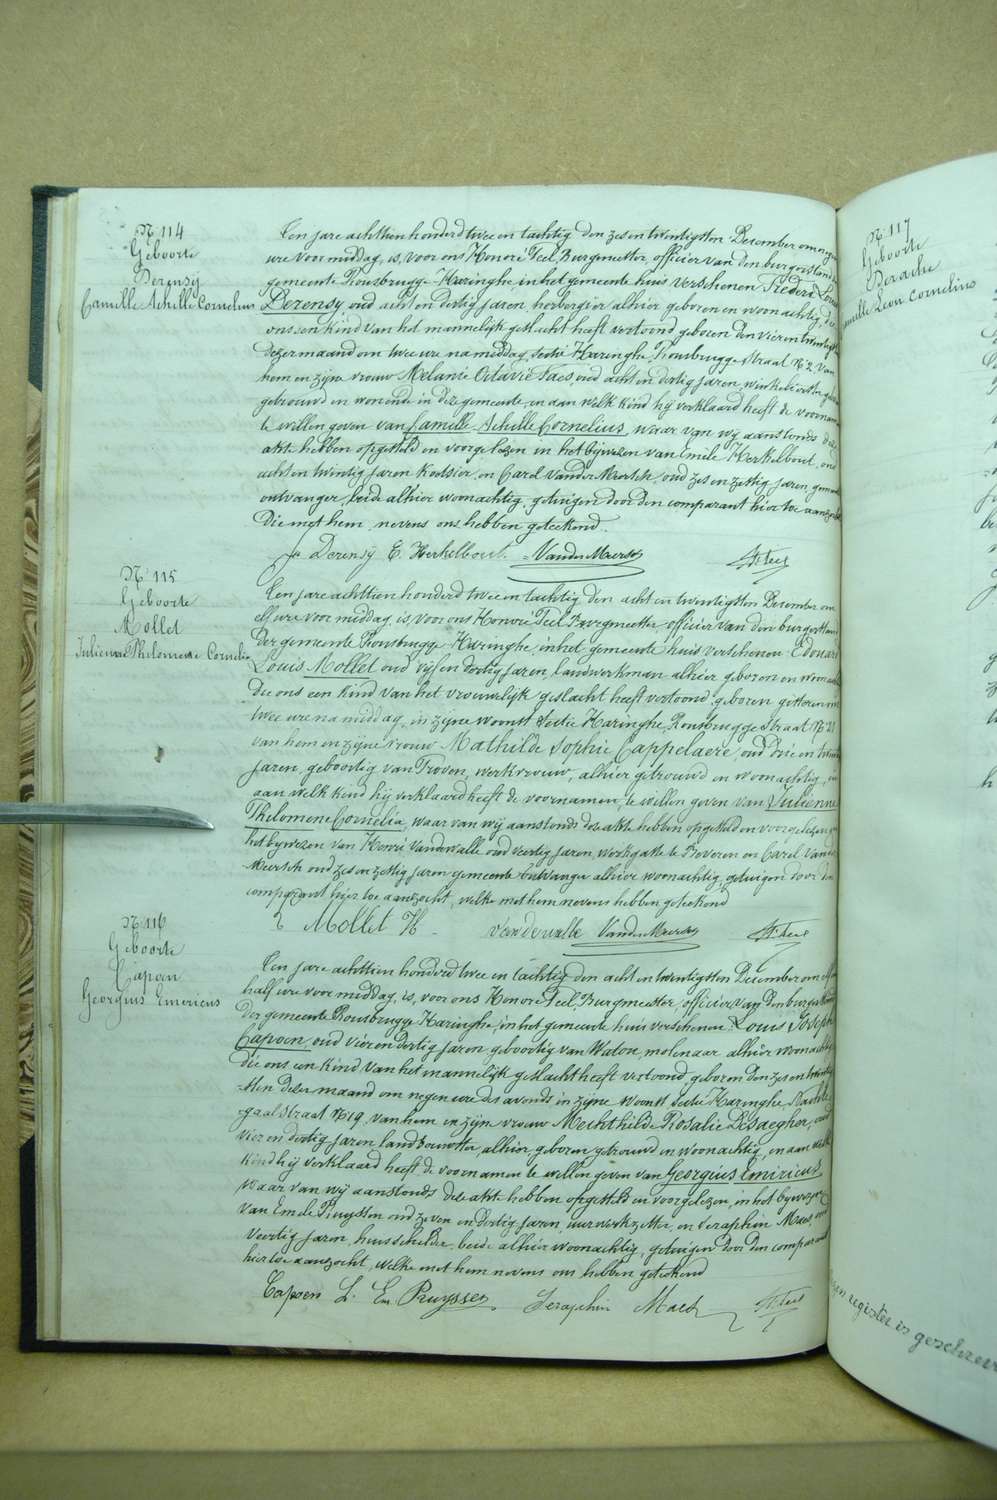 N° 114
Geboorte
Derensy
Camille Achille Cornelius
Een jare achttien honderd twee en tachtig den zes en twintigsten December om negen
ure voor middag, is, voor ons Honoré Teel, Burgmeester, officier van den burgerstand der
gemeente Rousbrugge Haringhe, in het gemeente huis verschenen Frederic Louis
Derensy, oud acht en dertig jaren, herbergier alhier geboren en woonachtig, die
ons een kind van het mannelijk geslacht heeft vertoond, geboren den vier en twintigsten
dezer maand om twee ure namiddag, sectie Haringhe Rousbrugge straat N° 2, van
hem en zijne vrouw Melanie Octavie Faes, oud acht en dertig jaren, winkelierster, alhier
getrouwd en wonende in deze gemeente, en aan welk kind hij verklaard heeft de voornamen
te willen geven van Camille Achille Cornelius, waar van wij aanstonds deze
akte hebben opgesteld en voorgelezen, in het bijwezen van Emile Herkelbout, oud
acht en twintig jaren, koetsier, en Carel Vander Meersch, oud zes en zestig jaren, gemeente
ontvanger, beide alhier woonachtig, getuigen door den comparant hier toe aanzocht
Die met hem, nevens ons hebben geteekend.
F. Derensy E. Herkelbout. VanderMeersch H. Teel
N° 115
Geboorte
Mollet
Julienne Philomene Cornelia
Een jare achttien honderd twee en tachtig den acht en twintigsten December om
elf ure voor middag, is, voor ons Honoré Teel, Burgmeester officier van den burgerstand
der gemeente Rousbrugge Haringhe, in het gemeente huis verschenen Edouard
Louis Mollet oud vijf en dertig jaren, landwerkman alhier geboren en woonachtig
Die ons een kind van het vrouwelijk geslacht heeft vertoond, geboren gisteren om
twee ure namiddag, in zijne woonst sectie Haringhe, Rousbrugge straat N° 21
van hem en zijne vrouw Mathilde Sophie Cappelaere, oud drie en twintig
jaren, geboortig van Proven, werkvrouw, alhier getrouwd en woonachtig, en
aan welk kind hij verklaard heeft de voornamen te willen geven van Julienne
Philomene Cornelia, waar van wij aanstonds deze akte hebben opgesteld en voorgelezen in
het bijwezen van Henri Vandewalle oud veertig jaren, werkgast te Proven en Carel Vander
Meersch oud zes en zestig jaren gemeente ontvanger alhier woonachtig, getuigen door den
comparant hier toe aanzocht, welke met hem nevens hebben geteekend
Mollet H. vandewalle VanderMeersch H. Teel
N° 116
Geboorte
Capoen
Georgius Emericus
Een jare achttien honderd twee en tachtig den acht en twintigsten December om
half ure voor middag, is, voor ons Honoré Teel, Burgmeester officier van den burgerstand
der gemeente Rousbrugge Haringhe, in het gemeente huis verschenen Louis Joseph
Capoen, oud vier en dertig jaren, geboortig van Watou, molenaar alhier woonachtig
die ons een kind van het mannelijk geslacht heeft vertoond, geboren den zes en twintig
sten dezer maand om negen ure des avonds in zijne woonst sectie Haringhe Nachte
gaal straat N° 19, van hem en zijne vrouw Mechthilde Rosalie Desaegher, oud
vier en dertig jaren landbouwster, alhier geboren getrouwd en woonachtig, en aan welk
kind hij verklaard heeft de voornamen te willen geven van Georgius Emiricus
waar van wij aanstonds deze akte hebben opgesteld en voorgelezen, in het bijwezen
van Emile Ruyssen oud zeven en dertig jaren uurwerkzetter, en Seraphin Maes, oud
veertig jaren, huisschilder, beide alhier woonachtig, getuigen door den comparant
hier toe aanzocht, welke met hem nevens ons hebben geteekend
Capoen L. Em Ruyssen Seraphin Maes H. Teel
N° 117
Geboorte
Derache
Camille Leon Cornelius
register is geschreven